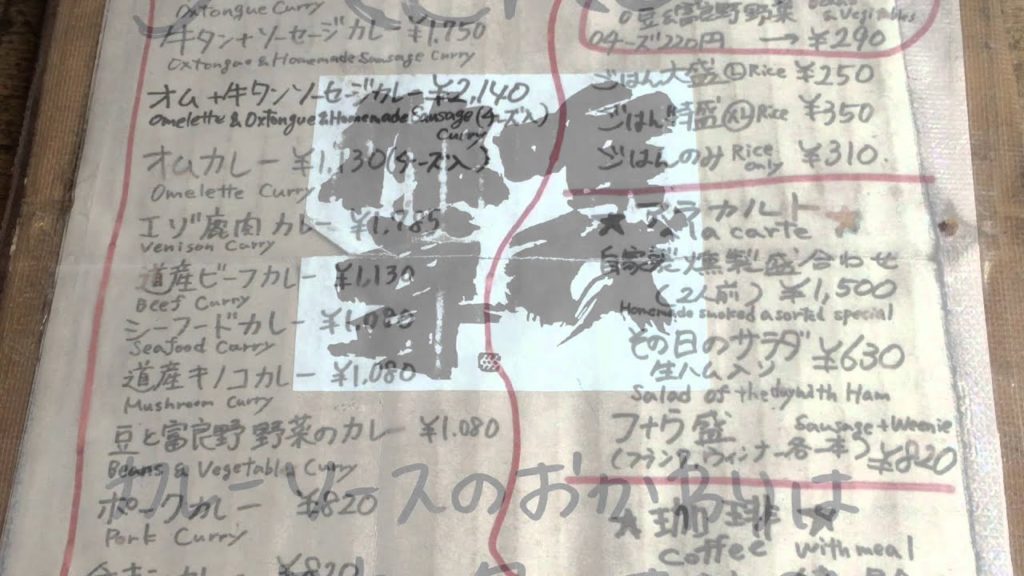 Oxtongue Curry
牛タン+ソーセージカレー ¥1,750
Oxtongue & Homemade Sausage Curry
オム+牛タンソーセージカレー ¥2,140
Omelette & Oxtongue & Homemade Sausage (チーズ入)
Curry
オムカレー ¥1,130 (チーズ入)
Omelette Curry
エゾ鹿肉カレー ¥1,785
Venison Curry
道産ビーフカレー ¥1,130
Beef Curry
シーフードカレー ¥1,080
Seafood Curry
道産キノコカレー ¥1,080
Mushroom Curry
豆と富良野野菜のカレー ¥1,080
Beans & Vegetable Curry
ポークカレー ¥820
Pork Curry
¥820
豆&富良野野菜 & Vegetables
チーズ220円 → ¥290
ごはん大盛 Ⓛ Rice ¥250
ごはん特盛 XL Rice ¥350
ごはんのみ Rice only ¥310.
★アラカルト★
a la carte
自家製燻製盛合わせ
(2人前) ¥1,500
Homemade smoked assorted special
その日のサラダ ¥630
生ハム入り
Salad of the day with Ham
フナウ盛 Sausage + Weenie
(フランク、ウィンナー各一本づつ) ¥820
★珈琲★
coffee with meal
カレーソースのおかわりは